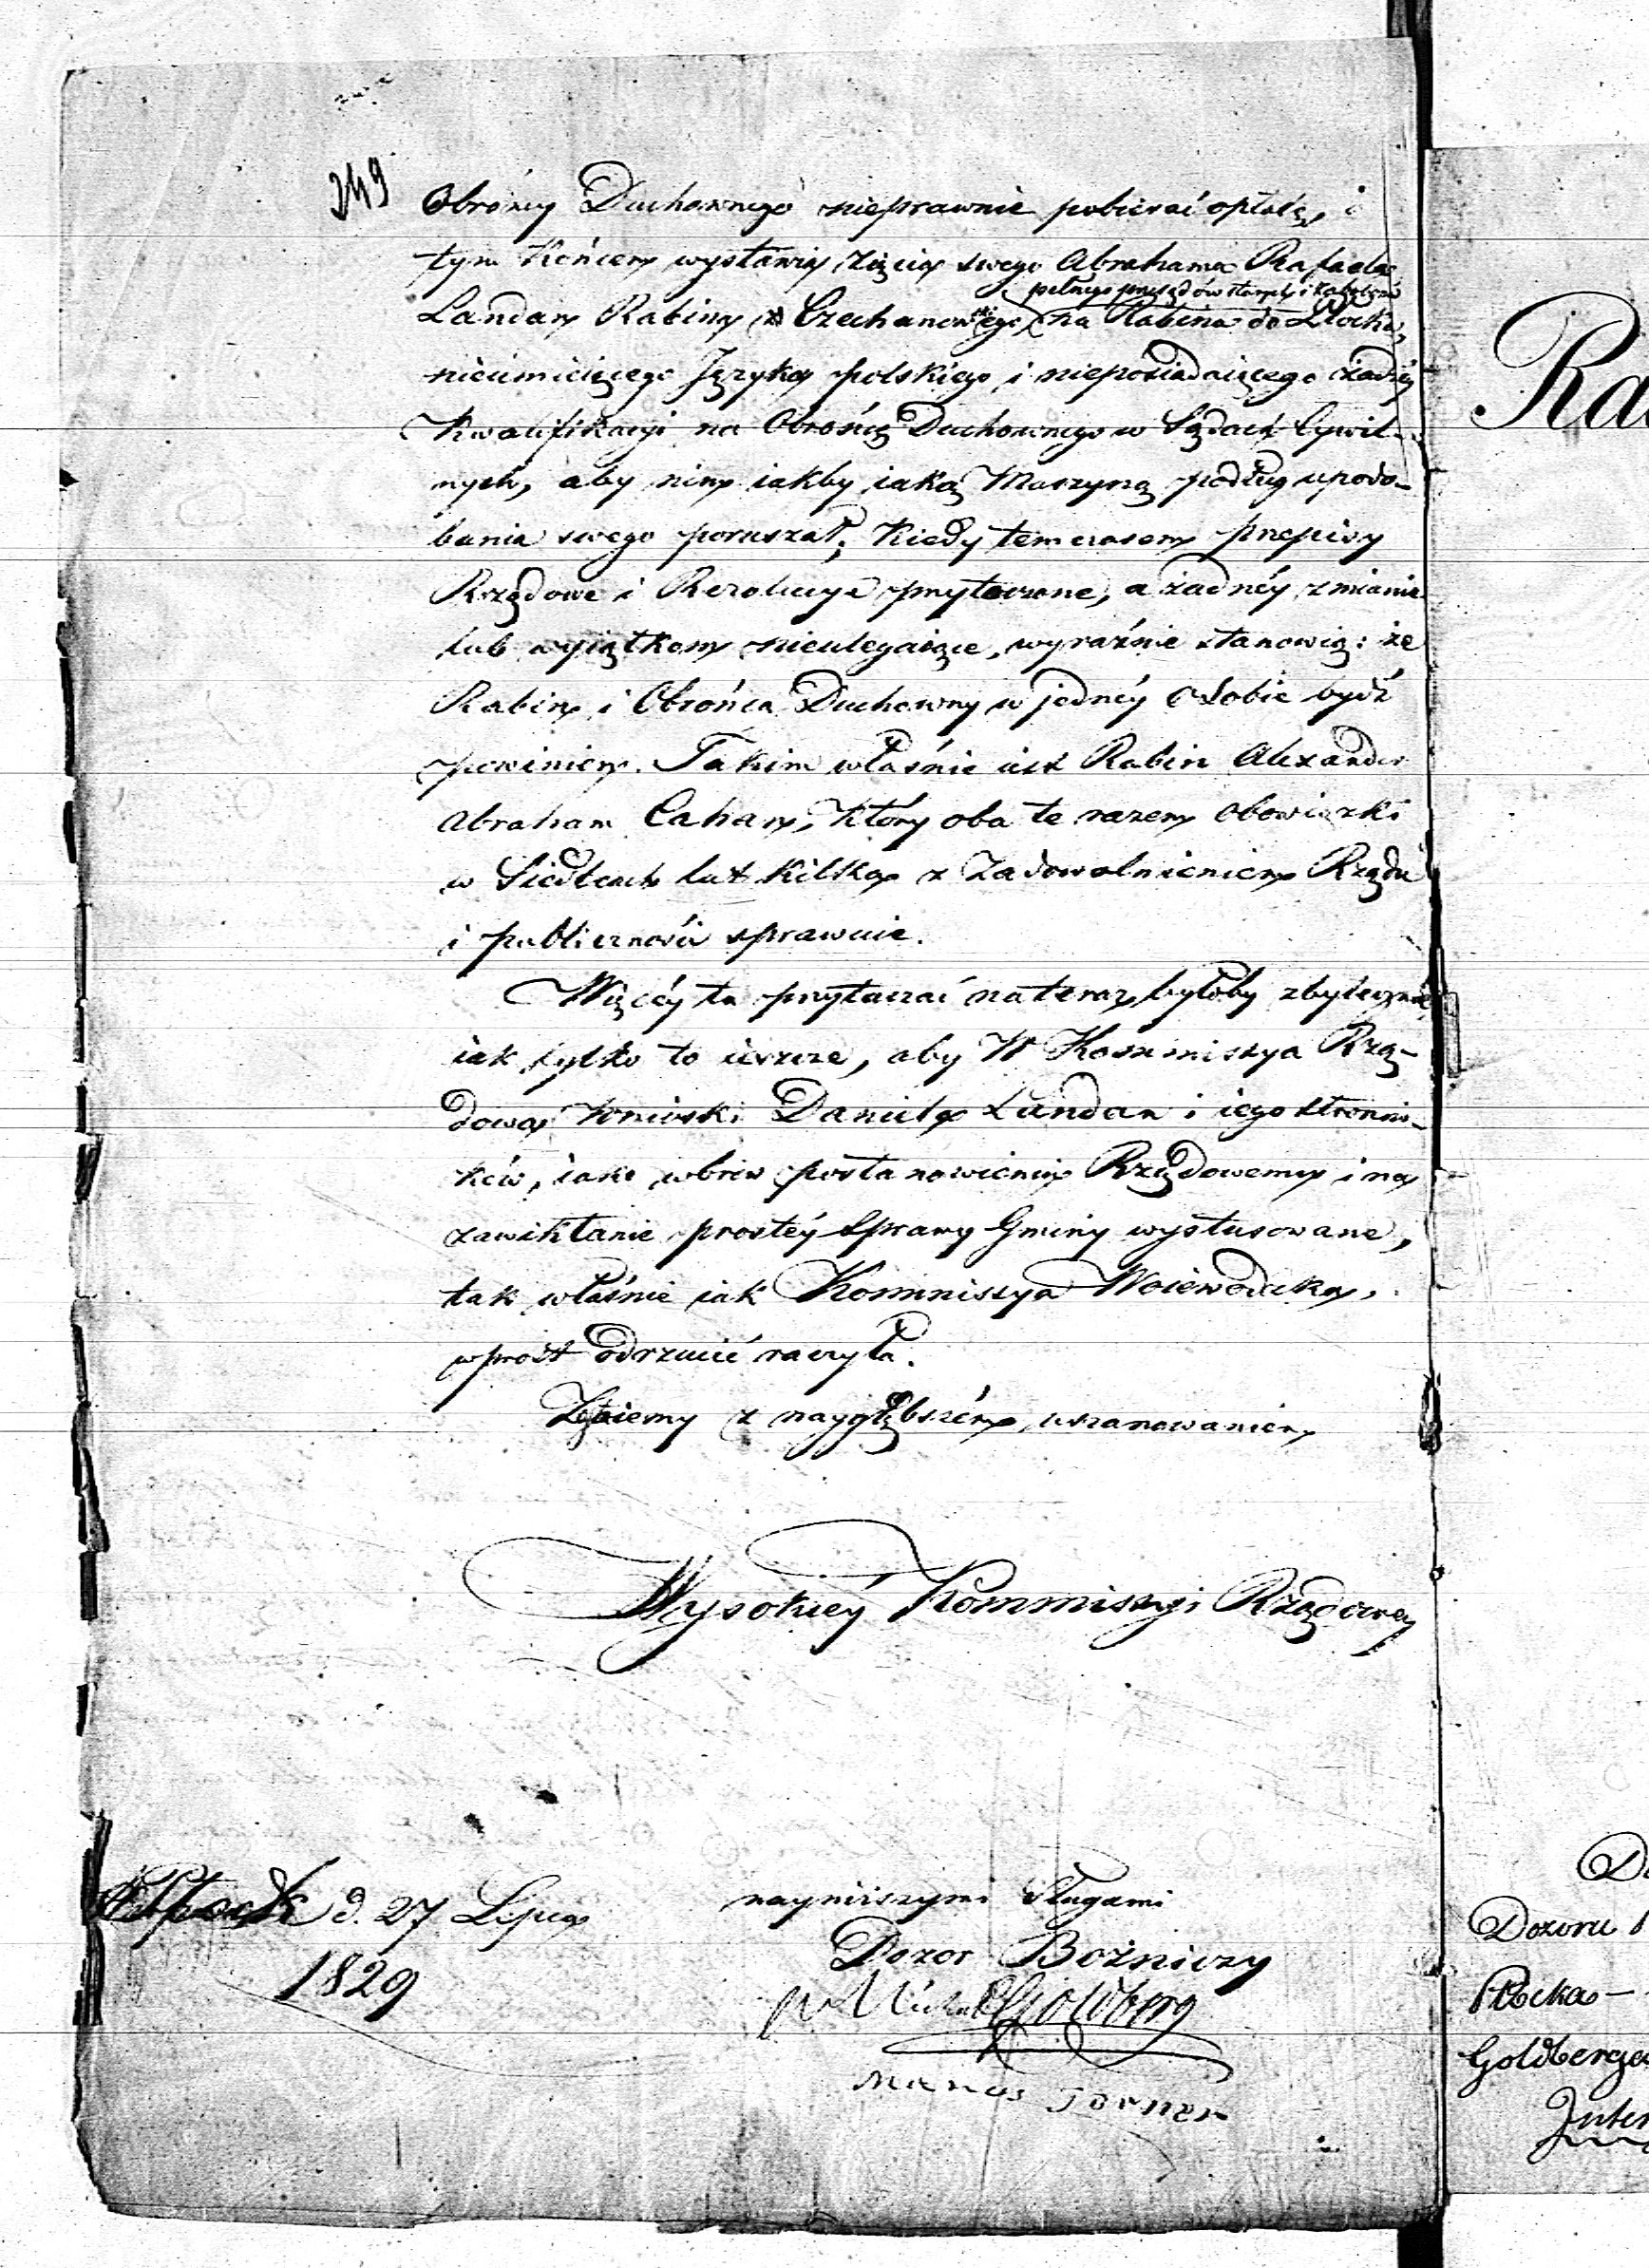 249
Obrońcy Duchownego nieprawnie pobierać opłatę, i
tym Końcem wystawia Zięcia swego Abrahama Rafaela
pełnego przesądów starych i
Landau Rabina z Czechanowskiego na Rabina do Płocka,
nieumieiącego Języka polskiego i nieposiadaiącego żadnéy
Kwalifikacyi na Obrońcę Duchownego w Sądach Cywil-
nych, aby nim iakby iaką Maszyną podług upodo-
bania swego poruszał; Kiedy temczasem przepisy
Rządowe i Rezolucye przytoczone, a żadnéy zmianie
lub wyiątkom nieulegaiące, wyraźnie stanowią: że
Rabin i Obrońca Duchowny w jednéy Osobie bydź
powinien. Takim właśnie iest Rabin Alexander
Abraham Cahan, który oba te razem Obowiązki
w Siedlcach lat kilka z Zadowolnieniem Rządu
i publiczności sprawuie.
Więcéy tu przytaczać na teraz byłoby zbyteczne
iak tylko to ieszcze, aby W Kommissya Rzą-
dowa Wnioski Daniela Landau i iego stronni-
ków, iako wbrew postanowieniu Rządowemu i na
zawikłanie prostéy Sprawy Gminy wystusowane,
tak właśnie iak Kommissya Woiewódzka,
wprost odrzucić raczyła.
Zostaiemy z naygłębszém uszanowaniem
Wysokiéy Kommissyi Rządowey
Płock d. 27 Lipca
1829
nayniższymi Sługami
Dozor Bożniczy
Michał Goldberg
Manas
Ra
D
Dozoru
Płocka –
Goldberga